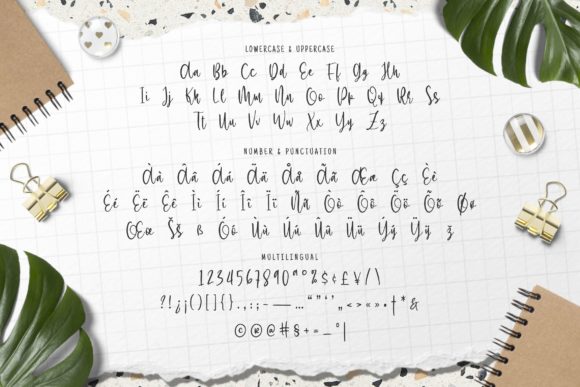 LOWERCASE & UPPERCASE
Aa Bb Cc Dd Ee Ff Gg Hh
Ii Jj Kk Ll Mm Nn Oo Pp Qq Rr Ss
Tt Uu Vv Ww Xx Yy Zz
NUMBER & PUNCTUATION
Àà Ââ Áá Ää Åå Ãã Œæ Çç Èè
Éé Ëë Êê Ìì Íí Îî Ïï Ññ Òò Óó Ôô Öö Õõ Øø
Œœ Šš ß Óó Ùù Úú Ûû Üü Ýý Ÿÿ ž
MULTILINGUAL
1234567890ªº%$¢£¥/\
?!¿¡()[]{}.,:;-—...“”‘’„<>«»•†*&
©®@#§+=_°|